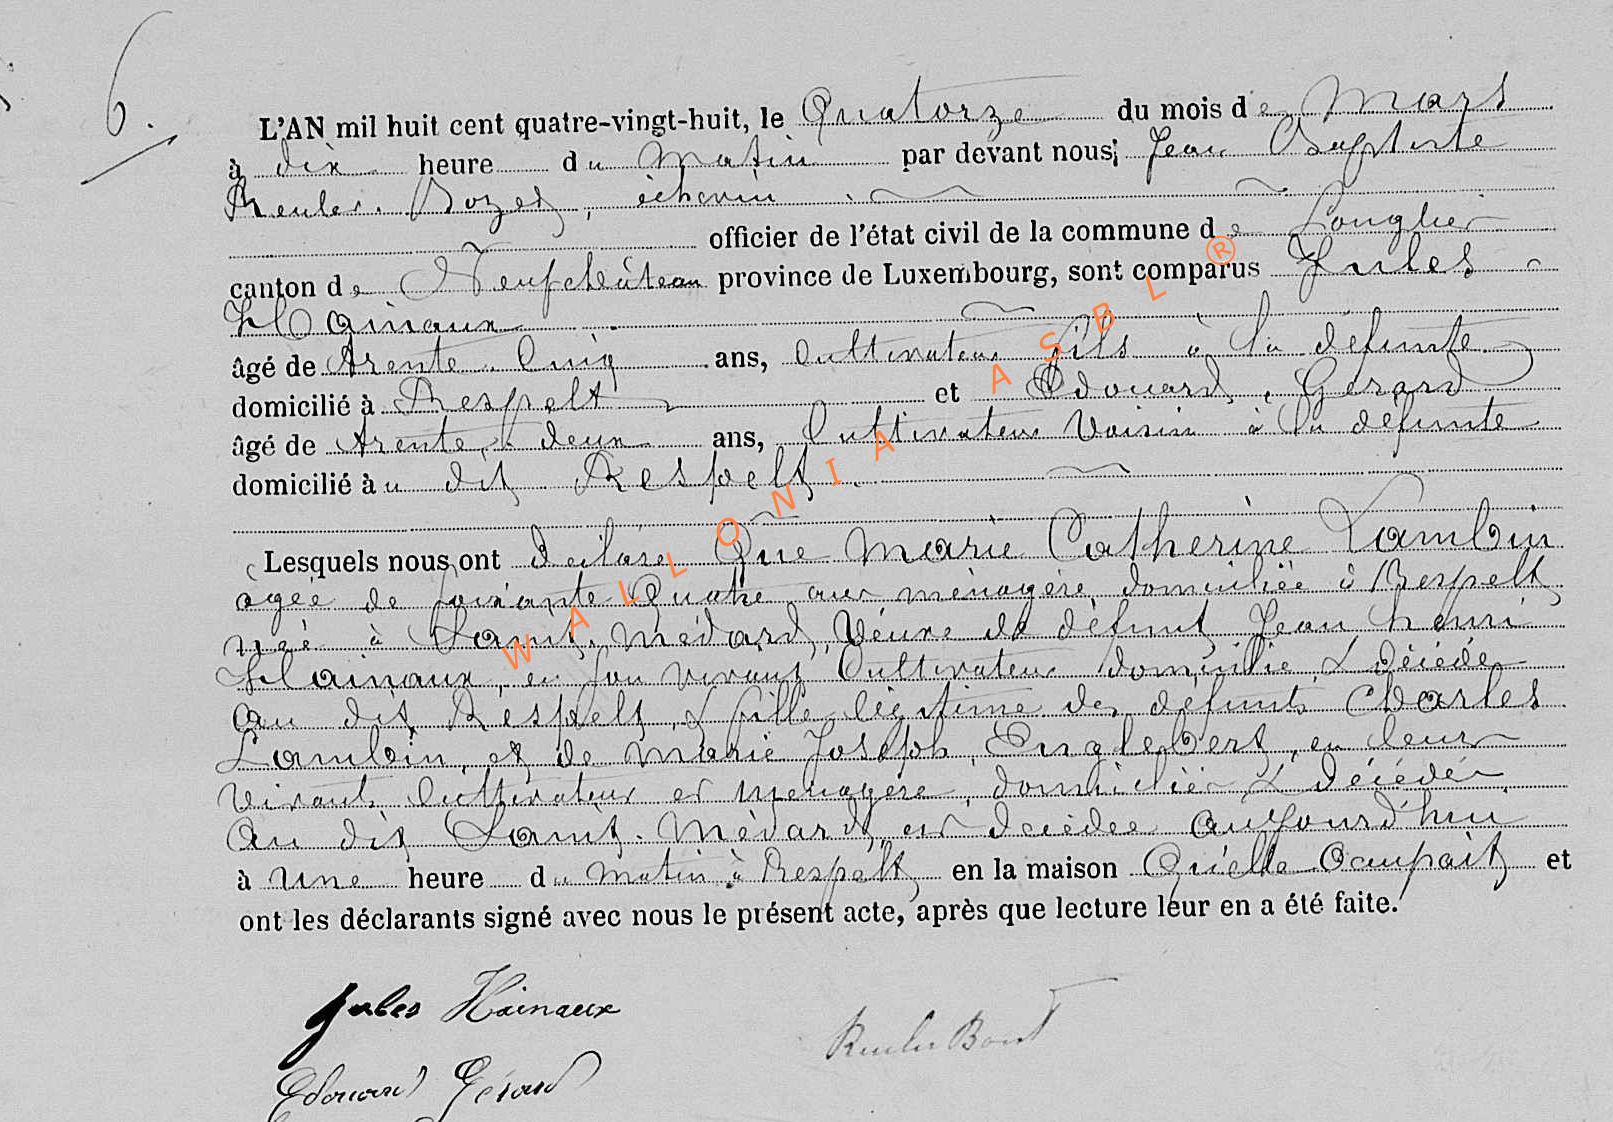 6.
L'AN mil huit cent quatre-vingt-huit, le Quatorze du mois de Mars
à dix heure du Matin par devant nous; Jean Baptiste
Reuler. Bozet, échevin
officier de l'état civil de la commune de Longlier
canton de Neufchâteau province de Luxembourg, sont comparus Jules
Hainaux
âgé de trente-Cinq ans, Cultivateur fils à la défunte
domicilié à Respelt et Edouard, Gérard
âgé de trente-deux ans, Cultivateur Voisin à la défunte
domicilié au dit Respelt.
Lesquels nous ont déclaré Que Marie Catherine Lambin
agée de soixante Quatre ans ménagère, domiciliée à Respelt
née à Saint-Médard, Veuve de défunt Jean henri
Hainaux, en son vivant Cultivateur domicilié & décédé
au dit Respelt, & fille légitime des défunts Charles
Lambin, et de Marie Joseph, Englebert, en leur
vivant Cultivateur et ménagère, domiciliés & décédés
au dit Saint-Médard, est décédée aujourd'hui
à Une heure du Matin à Respelt en la maison Qu'elle Ocupait et
ont les déclarants signé avec nous le présent acte, après que lecture leur en a été faite.
Jules Hainaux
Edouard Gérard
WALLONIA ASBL ®